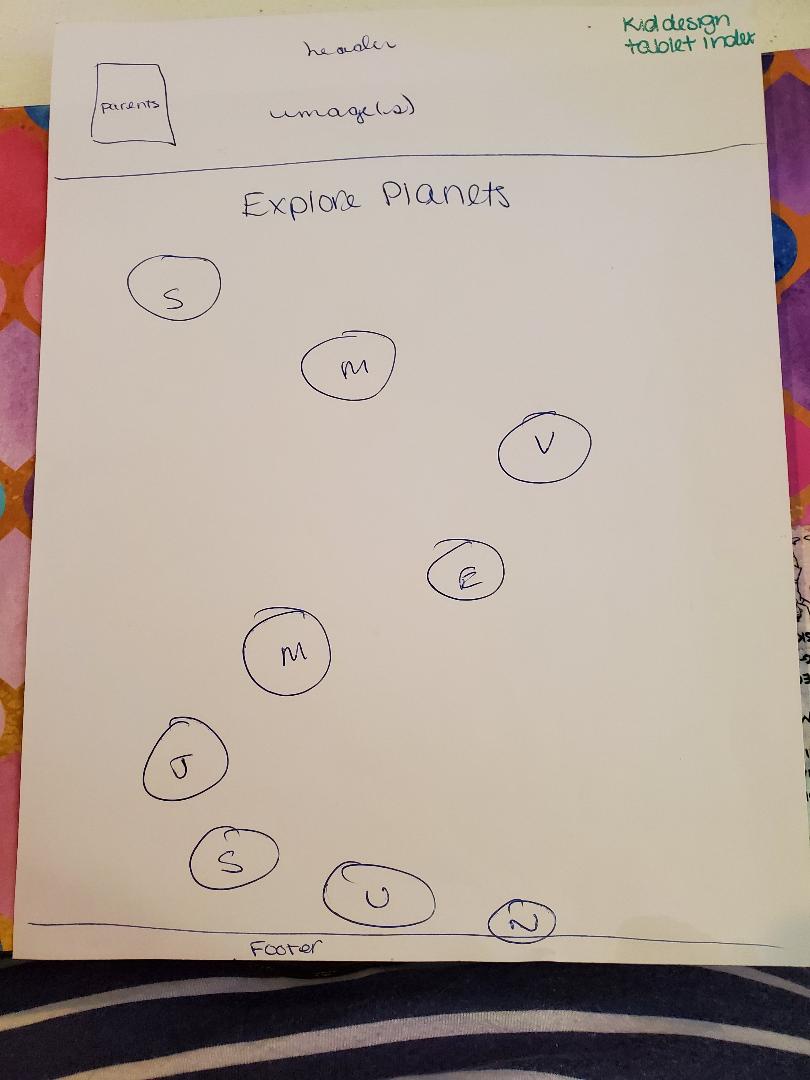 header
Kid design
tablet index
parents
image(s)
Explore Planets
S
M
V
E
M
J
S
U
N
Footer